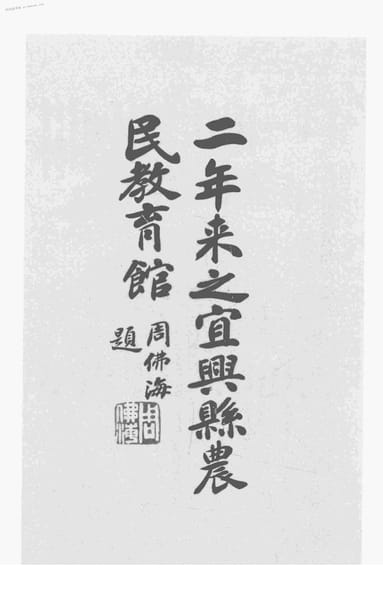 二年来之宜興縣農
民教育館
周佛海
題
周佛海